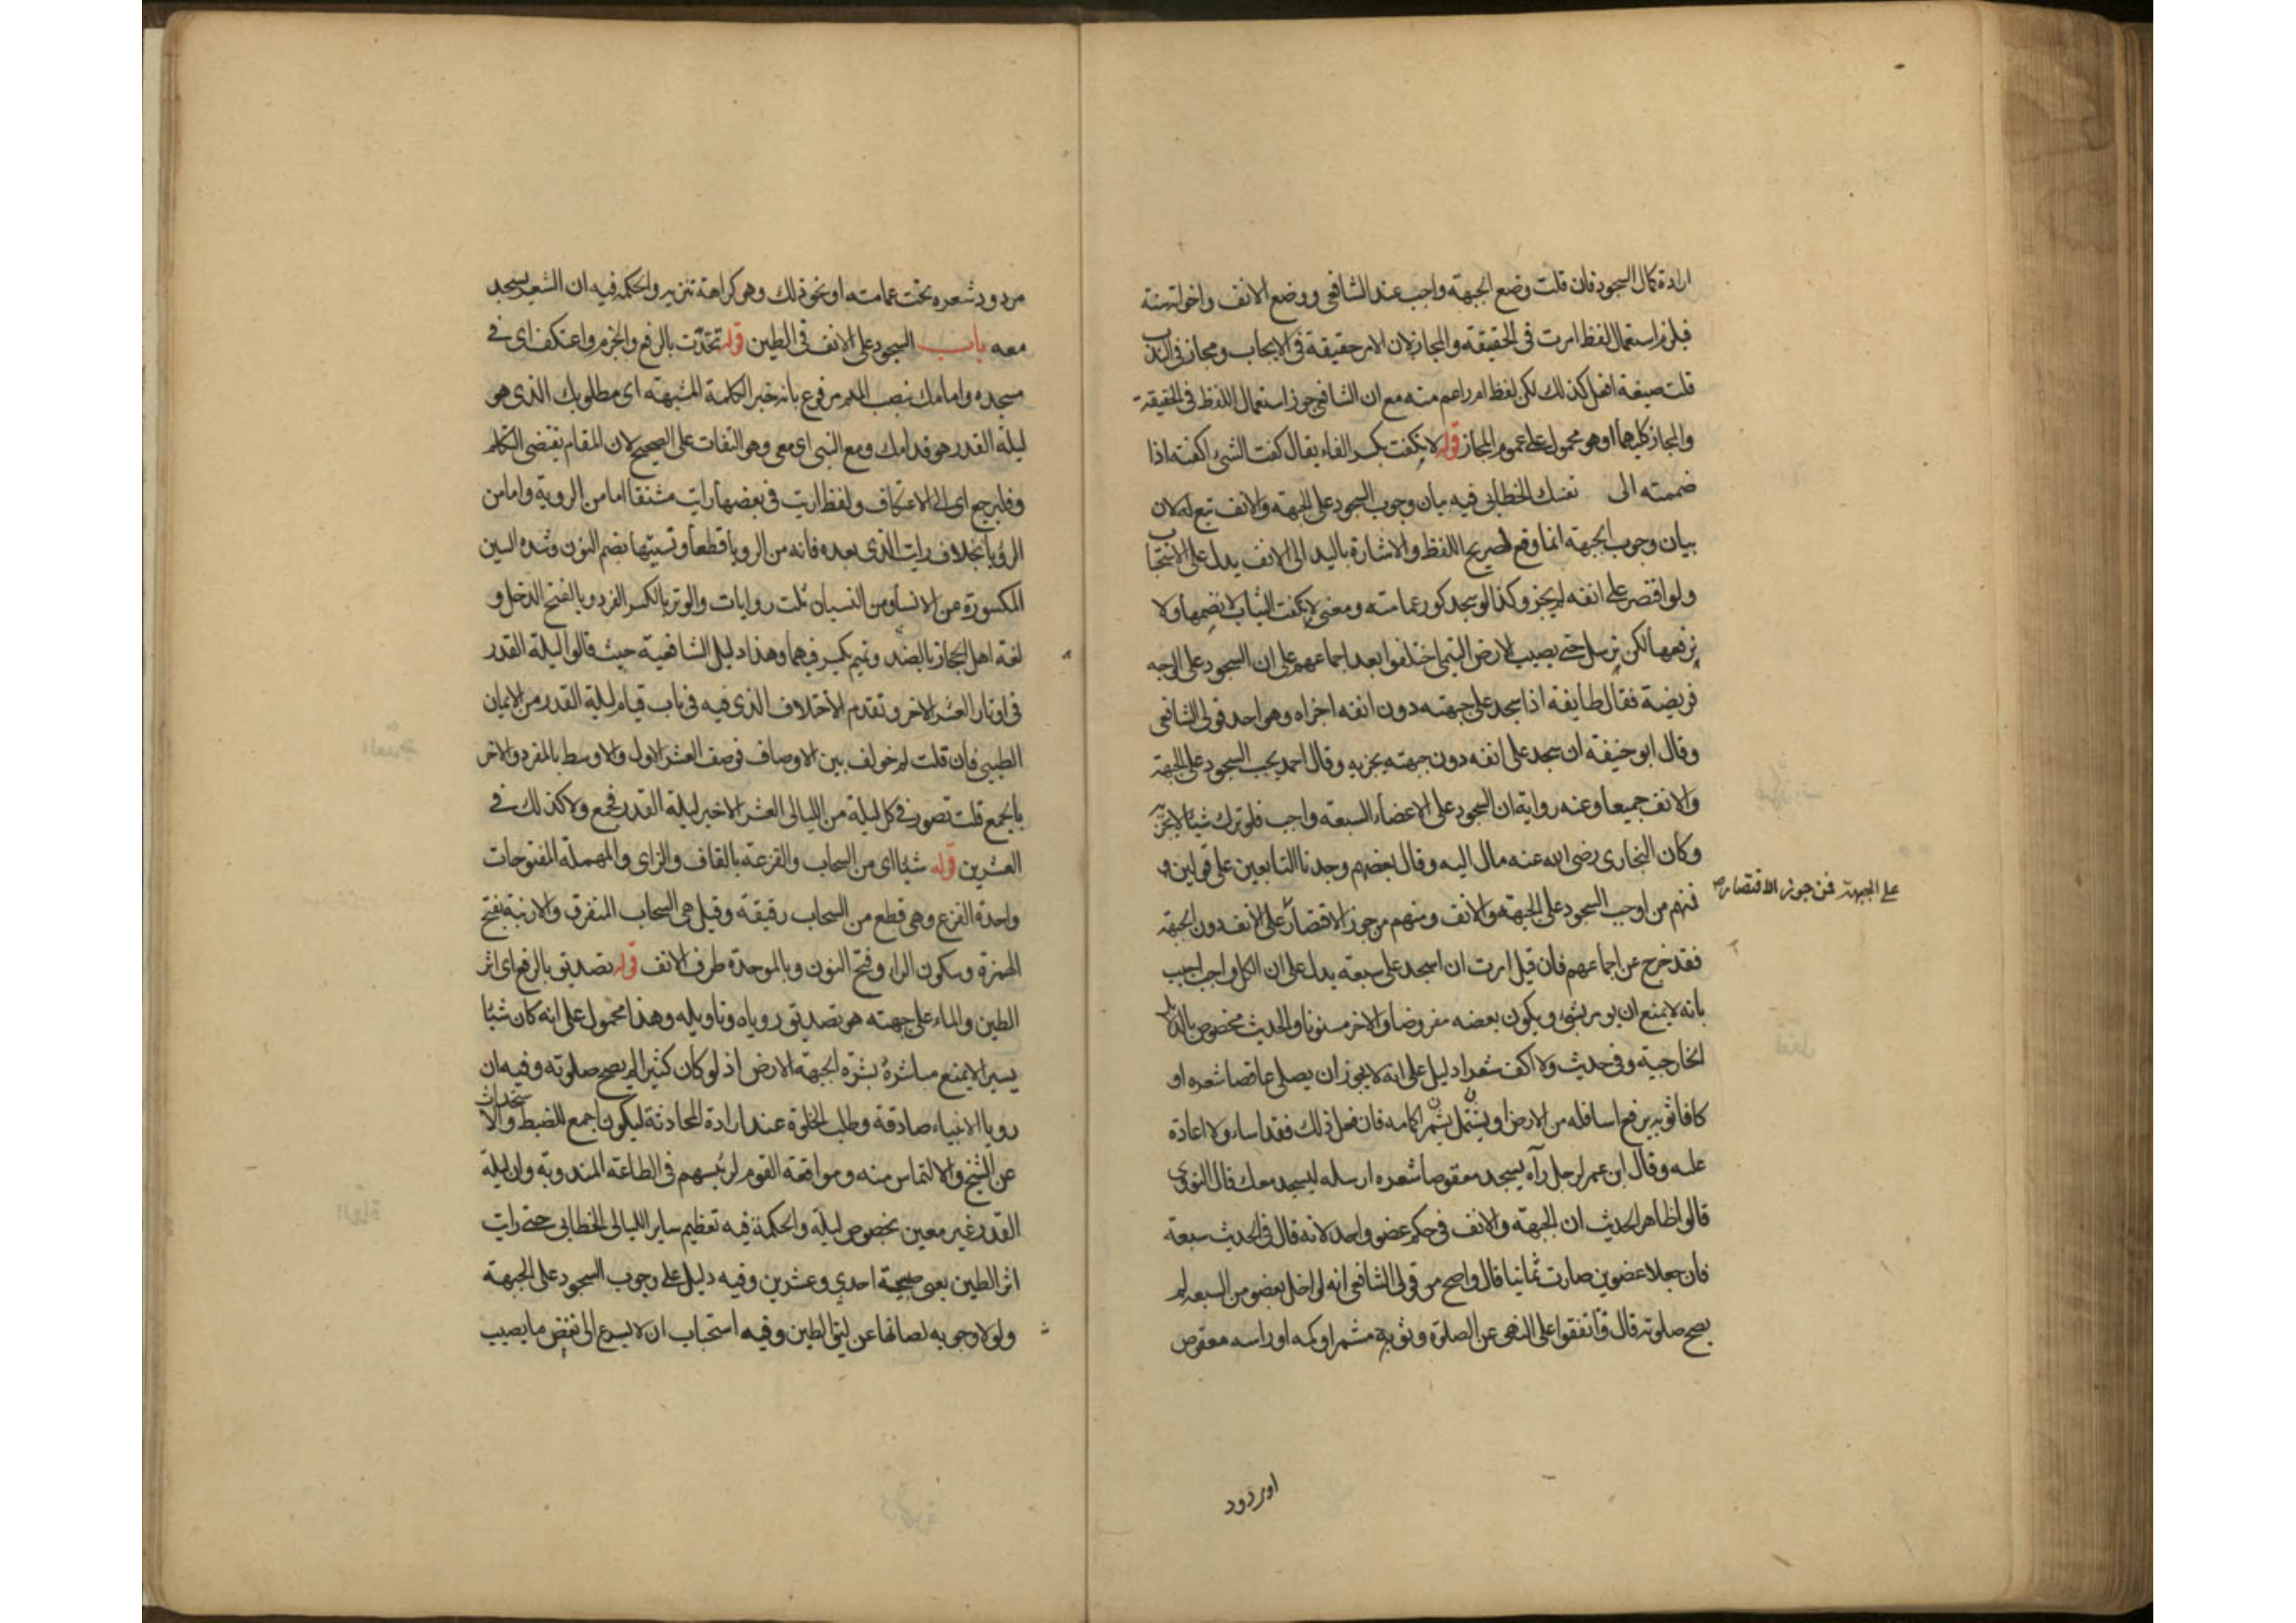 ارادة كمال السجود فان قلت وضع الجبهة واجب عند الشافعي ووضع الانف واخواته سنة
فيلزم استعمال لفظ امرت في الحقيقة والمجاز لان الامر حقيقة في الايجاب ومجاز في الندب
قلت صيغة افعل كذلك لكن لفظ امر اعم منه مع ان الشافعي جوز استعمال اللفظ في الحقيقة
والمجاز كليهما او هو محمول على عموم المجاز قوله لا يكفت بكسر الفاء يقال كفت الشئ اكفته اذا
ضممته الى نفسك الخطابي فيه بيان وجوب السجود على الجبهة والانف تبع له لان
بيان وجوب الجبهة انما وقع لصريح اللفظ والاشارة باليد الى الانف يدل على الاستحباب
ولو اقتصر على انفه لم يجز وكذا لو سجد كور عمامته ومعنى لا يكفت الثياب لا نضمها ولا
نرفعها لكن نرسل حتى يصيب الارض التيمي اختلفوا بعد اجماعهم على ان السجود على الوجه
فريضة فقال طايفة اذا سجد على جبهته دون انفه اجزاه وهو احد قولي الشافعي
وقال ابو حنيفة ان سجد على انفه دون جبهته يجزيه وقال احمد يجب السجود على الجبهة
والانف جميعا وعنه رواية ان السجود على الاعضاء السبعة واجب فلو ترك شيئا لا يجزيه
وكان البخاري رضى الله عنه مال اليه وقال بعضهم وجدنا التابعين على قولين و
على الجبهة فمن جوز الاقتصار
فمنهم من اوجب السجود على الجبهة والانف ومنهم من جوز الاقتصار على الانف دون الجبهة
فقد خرج عن اجماعهم فان قيل امرت ان اسجد على سبعة يدل على ان الكل واجب اجيب
بانه لا يمتنع ان يؤمر بشئ ويكون بعضه مفروضا والاخر مسنونا والحديث مخصوص بالدلايل
الخارجية وفي حديث ولا اكف شعرا دليل على انه لا يجوز ان يصلي عاقصا شعره او
كافا ثوبه يرفع اسافله من الارض او يشمر اكمامه فان فعل ذلك فقد اساء ولا اعادة
عليه وقال ابن عمر لرجل رآه يسجد معقوصا شعره ارسله ليسجد معك قال النووي
قالوا ظاهر الحديث ان الجبهة والانف في حكم عضو واحد لانه قال في الحديث سبعة
فان جعلا عضوين صارت ثمانيا قال واصح من قولي الشافعي انه لو اخل بعضو من السبعة لم
يصح صلوته قال واتفقوا على النهى عن الصلوة وثوبه مشمر او كمه او راسه معقوص
او مردود
مردود شعره تحت عمامته او نحو ذلك وهو كراهة تنزيه والحكمة فيه ان الشعر يسجد
معه باب السجود على الانف في الطين قوله تحدث بالرفع والجزم واعتكف اى في
مسجده وامامك نصب الميم مرفوع بانه خبر الكلمة المشبهة اى مطلوبك الذى هو
ليلة القدر هو قدامك ومع النبي اى معي وهو التفات على الصحيح لان المقام يقتضى التكلم
وفليرجع اى الى الاعتكاف ولفظ اريت في بعضها رايت مشتقا اما من الروية واما من
الرؤيا بخلاف رايت الذى بعده فانه من الرويا قطعا ونسيتها بضم النون وشدة السين
المكسورة من الانساء ومن النسيان ثلث روايات والوتر بالكسر الفرد وبالفتح الدخل و
لغة اهل الحجاز بالضد وتميم بكسر فيهما وهذا دليل الشافعية حيث قالوا ليلة القدر
في اوتار العشر الاخر وتقدم الاختلاف الذى فيه في باب قيام ليلة القدر من الايمان
الطيبي فان قلت لم خولف بين الاوصاف فوصف العشر الاول والاوسط بالمفرد والاخر
بالجمع قلت تصور في كل ليلة من الليالى العشر الاخير ليلة القدر فجمع ولا كذلك في
العشرين قوله شيئا اى من السحاب والقزعة بالقاف والزاى والمهملة المفتوحات
واحدة القزع وهى قطع من السحاب رقيقة وقيل هى السحاب المتفرق والارنبة بفتح
الهمزة وسكون الراء وفتح النون وبالموحدة طرف الانف قوله تصديق بالرفع اى اثر
الطين والماء على جبهته هو تصديق روياه وتاويله وهذا محمول على انه كان شيئا
يسيرا لا يمنع مباشرة بشرة الجبهة الارض اذ لو كان كثيرا لم يصح صلوته وفيه ان
رويا الانبياء صادقة وطلب الخلوة عند ارادة المحادثة ليكون اجمع للضبط والاستحداث
عن الشيخ والالتماس منه وموافقة القوم لرئيسهم في الطاعة المندوبة وان ليلة
القدر غير معين بخصوص ليلة والحكمة فيه تعظيم ساير الليالى الخطابي حتى رايت
اثر الطين يعني صبيحة احدى وعشرين وفيه دليل على وجوب السجود على الجبهة
ولولا وجوبه لصانها عن لثق الطين وفيه استحباب ان لا يسرع الى نفض ما يصيب